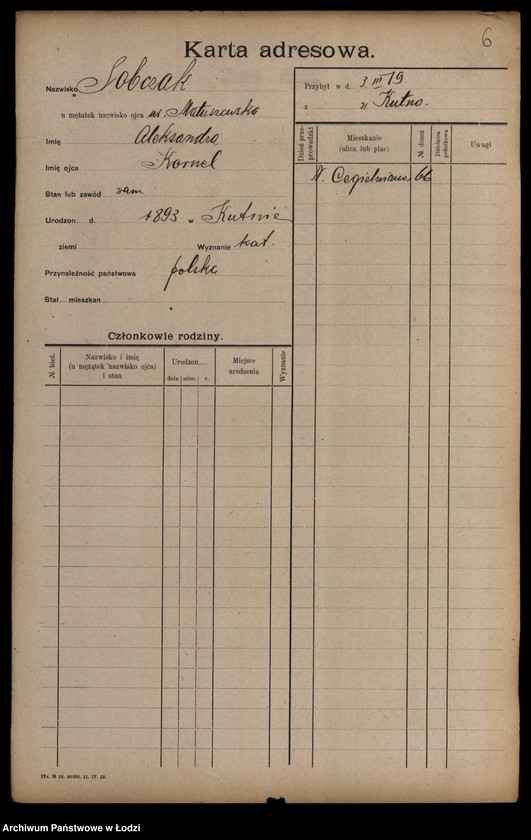 6
Karta adresowa.
Nazwisko Sobczak
u mężatek nazwisko ojca ur. Matuszewska
Imię Aleksandra
Imię ojca Kornel
Stan lub zawód zam.
Urodzon d. 1893 w Kutnie
ziemi Wyznanie kat.
Przynależność państwowa polska
Stał. mieszkan.
Przybył w d. 3. III 19
z Kutno.
Dzień prze-prowadzki
Mieszkanie (ulica lub plac)
№ domu
Dzielnica podatkowa
Uwagi
N. Cegielniana 66
Członkowie rodziny.
№ bież.
Nazwisko i imię (u mężatek nazwisko ojca) i stan
Urodzon
dnia mies. r.
Miejsce urodzenia
Wyznanie
ITc. № 18. 20000. 11. IV. 19.
Archiwum Państwowe w Łodzi